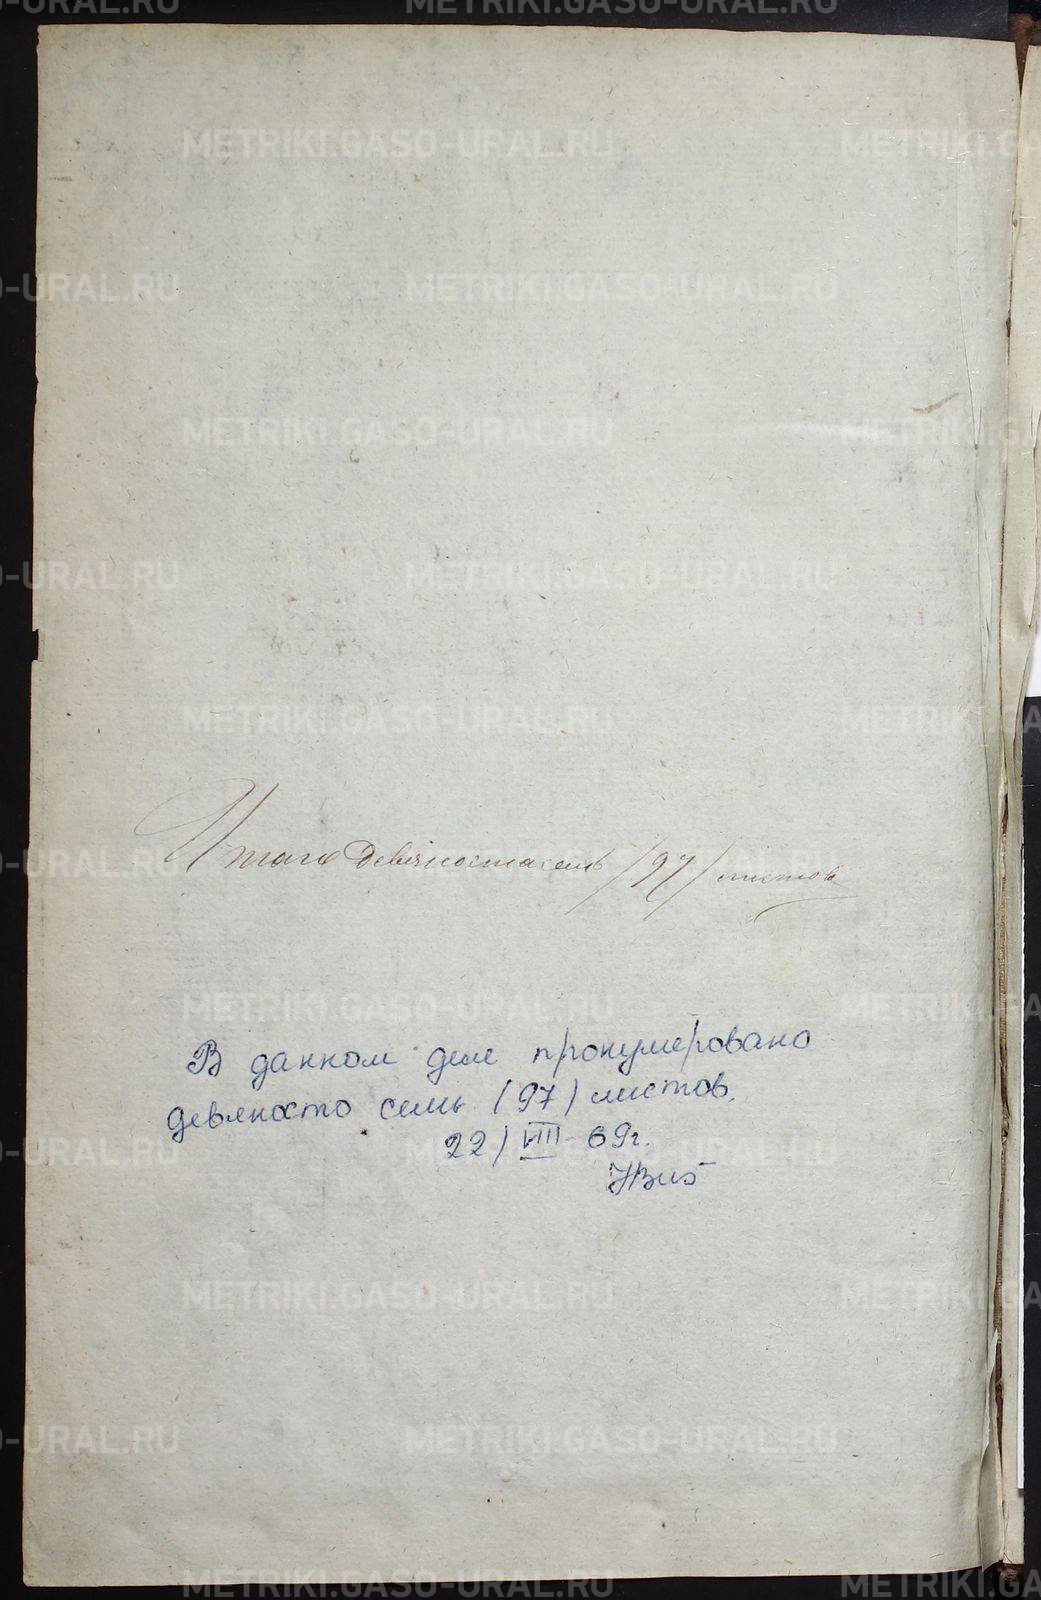 Итого девяностасемь /97/ листов
В данном деле пронумеровано
девяносто семь (97) листов.
22/VIII-69г.
METRIKI.GASO-URAL.RU